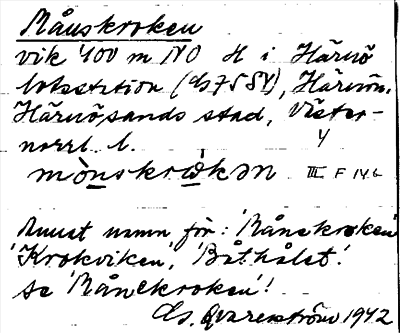 Månskroken
vik 400 m NO H i Härnö
lotsstation (ds 7 S SV), Härnön,
Härnösands stad, Väster-
norrl. l. 4
mònskrωkən III F 14 b
Annat namn för: 'Månskroken'
'Krokviken', 'Båthålet'.
se 'Månskroken'!
ds. Qvarnström 1942